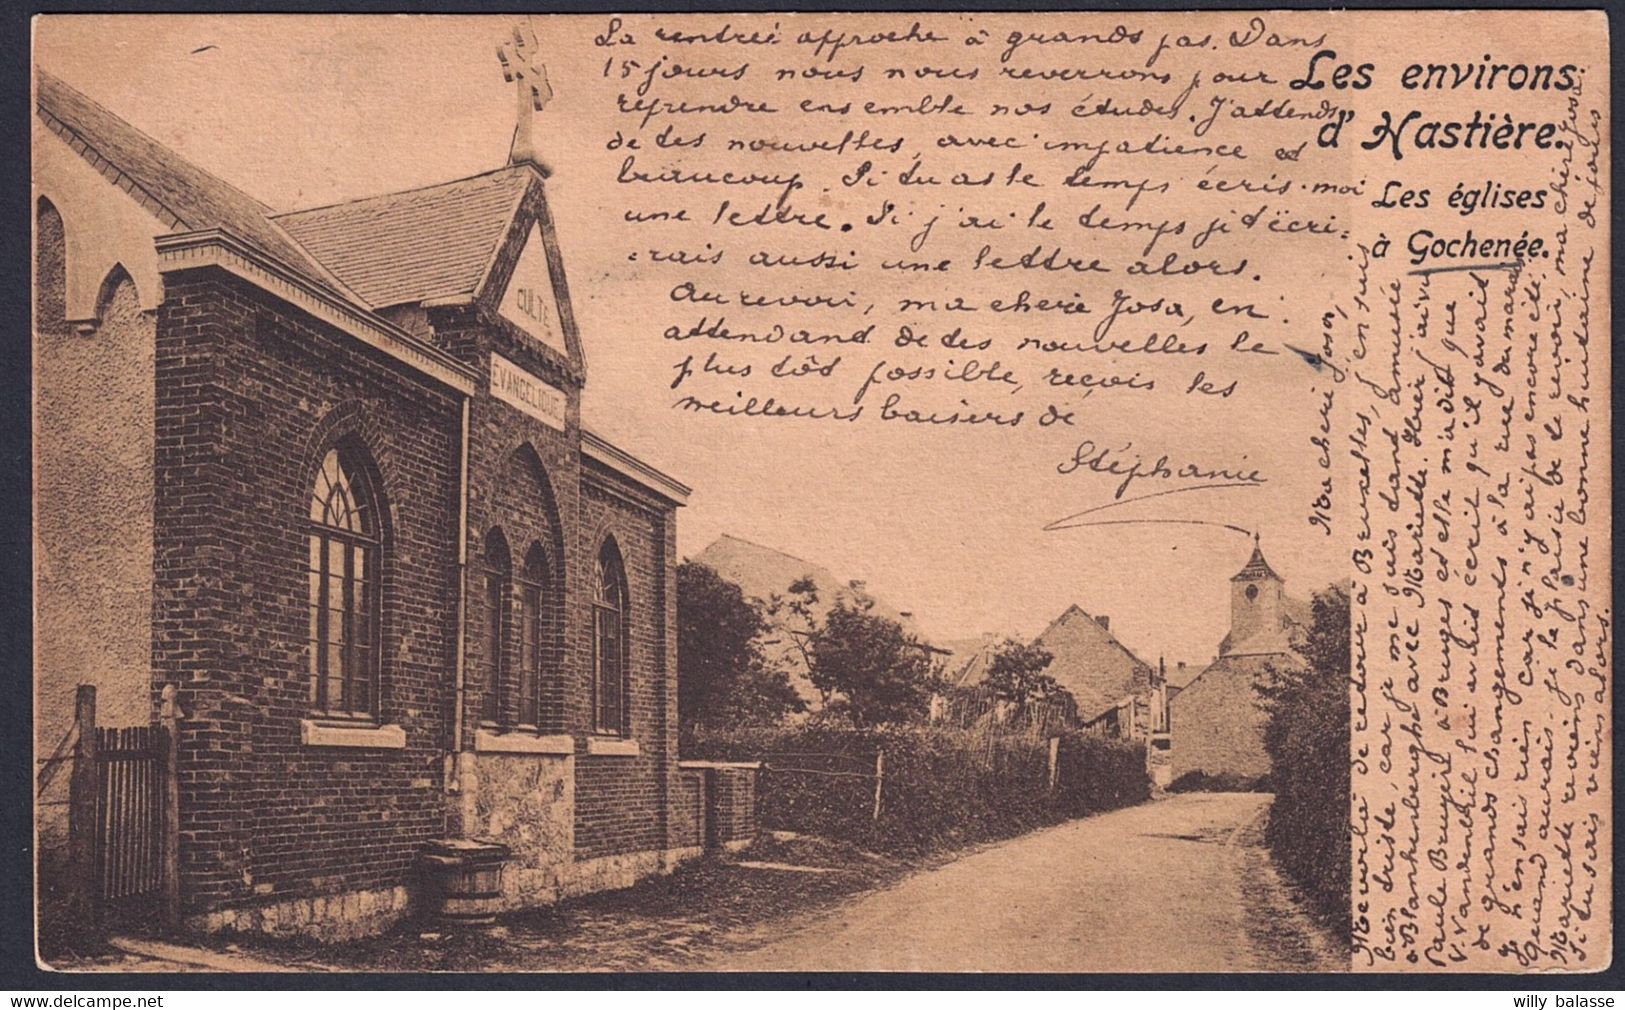 La rentrée approche à grands pas. Dans
15 jours nous nous reverrons pour
reprendre ensemble nos études. J'attends
de tes nouvelles, avec impatience et
beaucoup. Si tu as le temps écris-moi
une lettre. Si j'ai le temps je t'écri=
=rais aussi une lettre alors.
Au revoir, ma cherie Josa, en
attendand de tes nouvelles le
plus tôt possible, reçois les
meilleurs baisers de
Stéphanie
Les environs
d'Hastière.
Les églises
à Gochenée.
CULTE
EVANGELIQUE
Ma cherie Josa,
Me voilà de retour à Bruxelles, j'en suis
bien triste, car je me suis tant amusée
à Blankenberghe avec Mariette. Hier j'ai vu
Paule à Bruges et elle m'a dit que
V. Vandentil lui avais écrit qu'il y avait
de grands changements à la rue du marais
Je n'en sai rien car je n'y ai pas encore été.
Quand aurais-je le plaisir de te revoir, ma chère Josa
Mariette reviens dans une bonne huitaine de jours
Si tu serais viens alors.
willy balasse